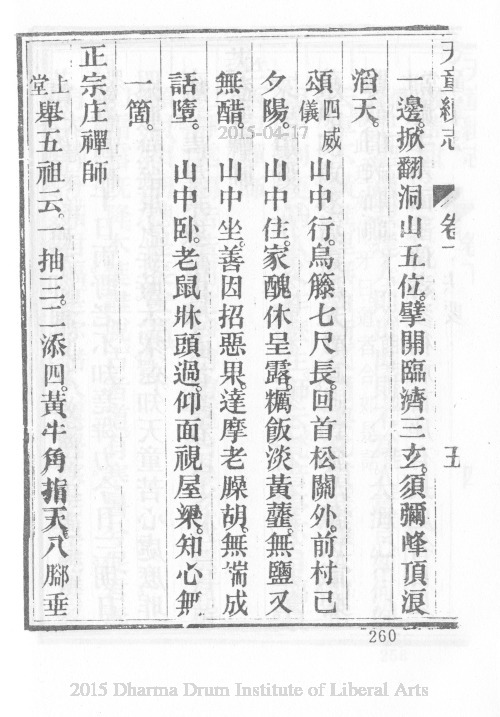 天童續志 卷 五
一邊。掀翻洞山五位。擘開臨濟三玄。須彌峰頂浪
滔天。
頌四威儀 山中行。烏籐七尺長。回首松關外。前村已
夕陽。山中住。家醜休呈露。糲飯淡黃虀。無鹽又
無醋。山中坐。善因招惡果。達摩老臊胡。無耑成
話墮。山中臥。老鼠牀頭過。仰面視屋梁。知心無
一箇。
正宗庄禪師
上堂舉五祖云。一抽三。二添四。黃牛角指天。八腳垂
2015-04-17
260
2015 Dharma Drum Institute of Liberal Arts